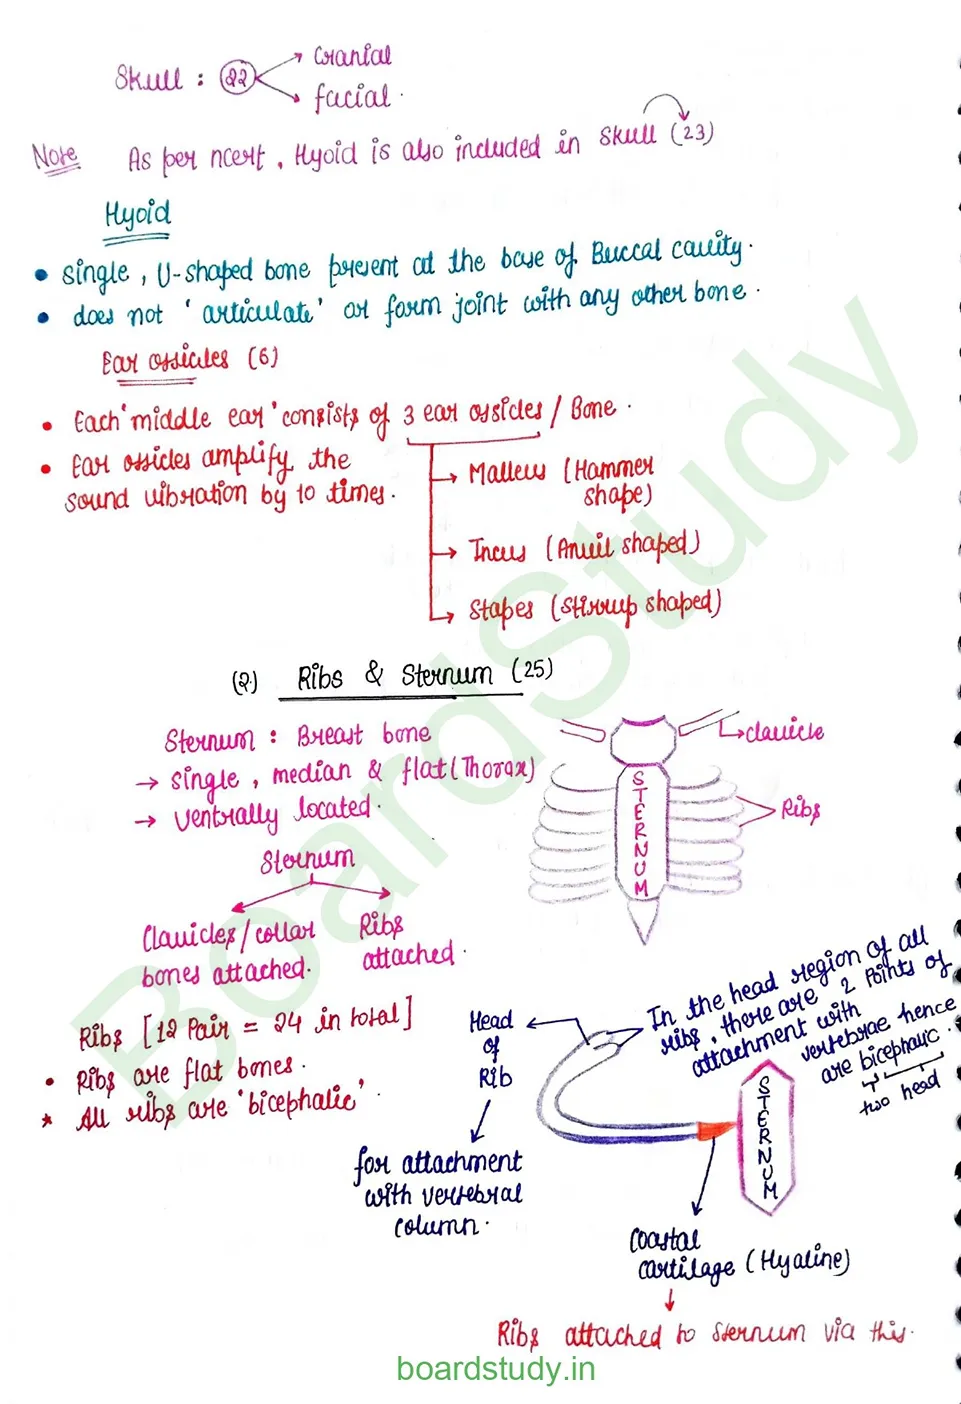 Skull : 22
Cranial
facial.
Note As per ncert, Hyoid is also included in Skull (23)
Hyoid
• single, U-shaped bone present at the base of Buccal cavity.
• does not 'articulate' or form joint with any other bone.
Ear ossicles (6)
• Each 'middle ear' consists of 3 ear ossicles / Bone.
• Ear ossicles amplify the
sound vibration by 10 times.
Malleus (Hammer
shape)
Incus (Anvil shaped)
Stapes (Stirrup shaped)
(2.) Ribs & Sternum (25)
Sternum : Breast bone
→ single, median & flat (Thorax)
→ ventrally located.
Sternum
Clavicles/collar
bones attached.
Ribs
attached.
clavicle
Ribs
STERNUM
Ribs [12 Pair = 24 in total]
• Ribs are flat bones.
* All ribs are 'bicephalic'
Head
of
Rib
for attachment
with vertebral
column.
In the head region of all
ribs, there are 2 points of
attachment with
vertebrae hence
are bicephalic.
two head
STERNUM
Coastal
cartilage (Hyaline)
Ribs attached to sternum via this.
BoardStudy
boardstudy.in